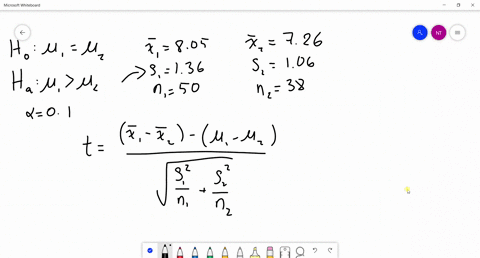 Microsoft Whiteboard
NT
H₀: μ₁ = μ₂
Hₐ: μ₁ > μ₂
α = 0.1
x̄₁ = 8.05
S₁ = 1.36
n₁ = 50
x̄₂ = 7.26
S₂ = 1.06
n₂ = 38
t = ((x̄₁ - x̄₂) - (μ₁ - μ₂)) / √(S₁²/n₁ + S₂²/n₂)